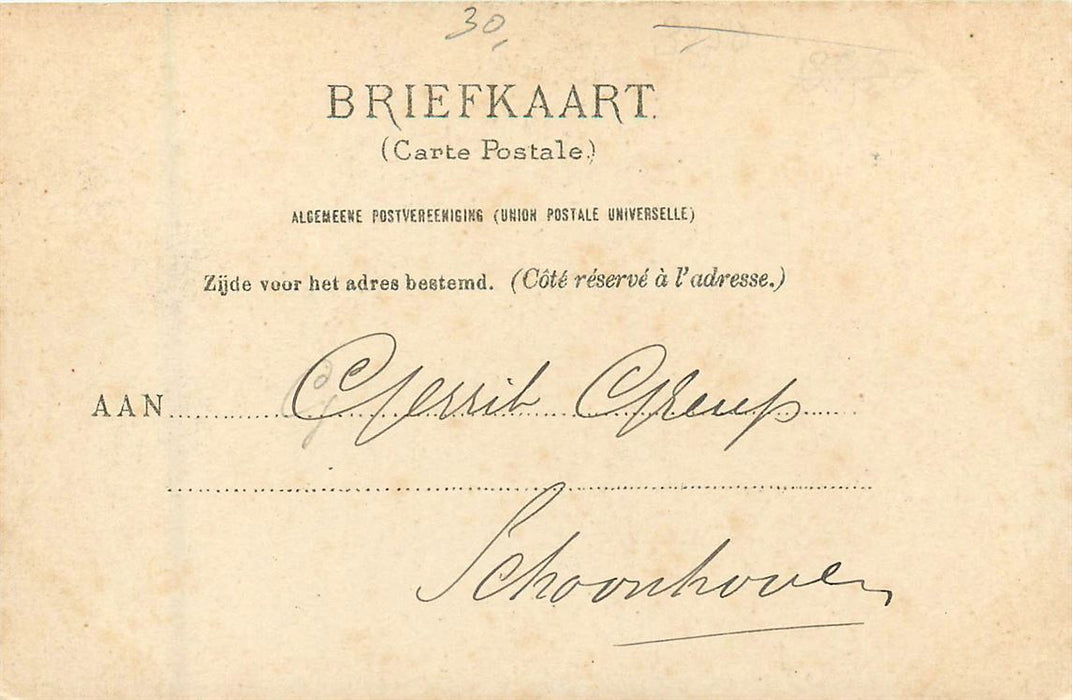 30,
BRIEFKAART.
(Carte Postale.)
ALGEMEENE POSTVEREENIGING (UNION POSTALE UNIVERSELLE)
Zijde voor het adres bestemd. (Côté réservé à l'adresse.)
AAN Gerrit
Schoonhoven